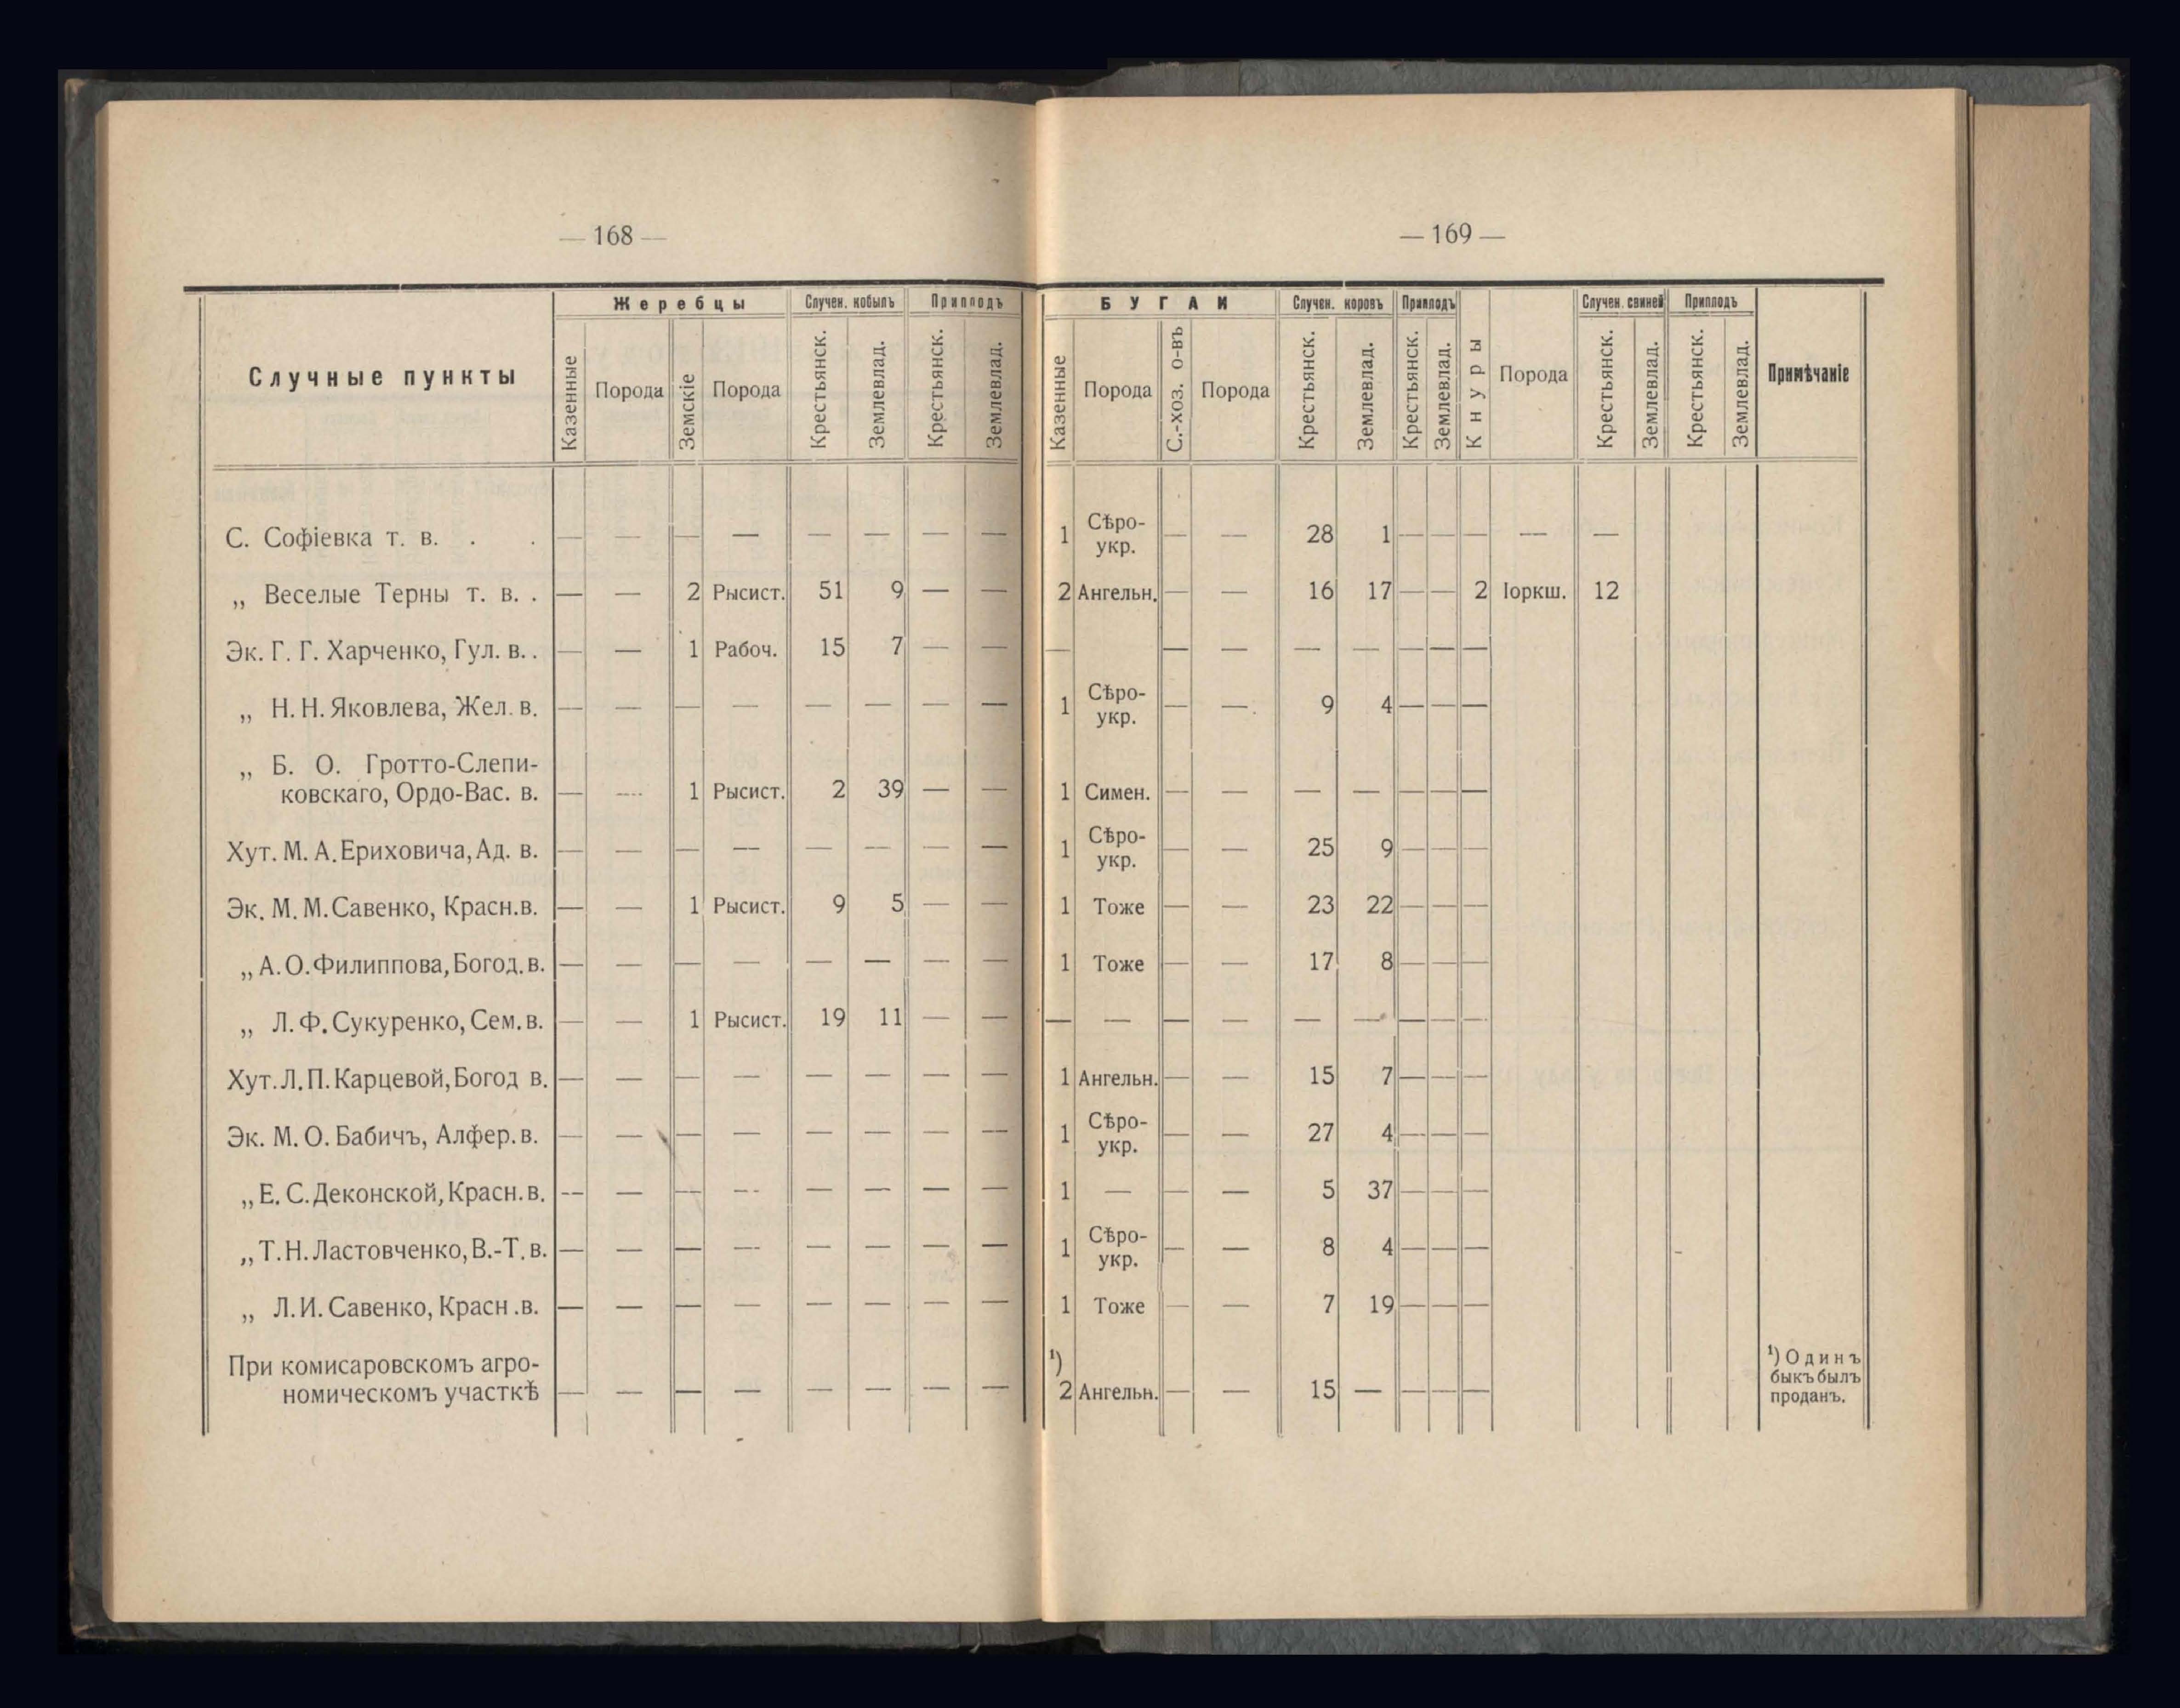 — 168 —
Случные пункты
Жеребцы
Случен. кобылъ
Приплодъ
Казенные
Порода
Земскіе
Порода
Крестьянск.
Землевлад.
Крестьянск.
Землевлад.
С. Софіевка т. в. . . — — — — — — — —
„ Веселые Терны т. в. . — — 2 Рысист. 51 9 — —
Эк. Г. Г. Харченко, Гул. в. . — — 1 Рабоч. 15 7 — —
„ Н. Н. Яковлева, Жел. в. — — — — — — — —
„ Б. О. Гротто-Слепи-
ковскаго, Ордо-Вас. в. — — 1 Рысист. 2 39 — —
Хут. М. А. Ериховича, Ад. в. — — — — — — — —
Эк. М. М. Савенко, Красн. в. — — 1 Рысист. 9 5 — —
„ А. О. Филиппова, Богод. в. — — — — — — — —
„ Л. Ф. Сукуренко, Сем. в. — — 1 Рысист. 19 11 — —
Хут. Л. П. Карцевой, Богод в. — — — — — — — —
Эк. М. О. Бабичъ, Алфер. в. — — — — — — — —
„ Е. С. Деконской, Красн. в. — — — — — — — —
„ Т. Н. Ластовченко, В.-Т. в. — — — — — — — —
„ Л. И. Савенко, Красн. в. — — — — — — — —
При комисаровскомъ агро-
номическомъ участкѣ — — — — — — — —
— 169 —
БУГАИ
Случен. коровъ
Приплодъ
Кнуры
Порода
Случен. свиней
Приплодъ
Примѣчаніе
Казенные
Порода
С.-хоз. о-въ
Порода
Крестьянск.
Землевлад.
Крестьянск.
Землевлад.
Крестьянск.
Землевлад.
Крестьянск.
Землевлад.
1 Сѣро-
укр. — — 28 1 — — — — —
2 Ангельн. — — 16 17 — — 2 Іоркш. 12
— — — — — — — —
1 Сѣро-
укр. — — 9 4 — — —
1 Симен. — — — — — — —
1 Сѣро-
укр. — — 25 9 — — —
1 Тоже — — 23 22 — — —
1 Тоже — — 17 8 — — —
— — — — — — — — —
1 Ангельн. — — 15 7 — — —
1 Сѣро-
укр. — — 27 4 — — —
1 — — — 5 37 — — —
1 Сѣро-
укр. — — 8 4 — — —
1 Тоже — — 7 19 — — —
¹)
2 Ангельн. — — 15 — — — —
¹) Одинъ
быкъ былъ
проданъ.